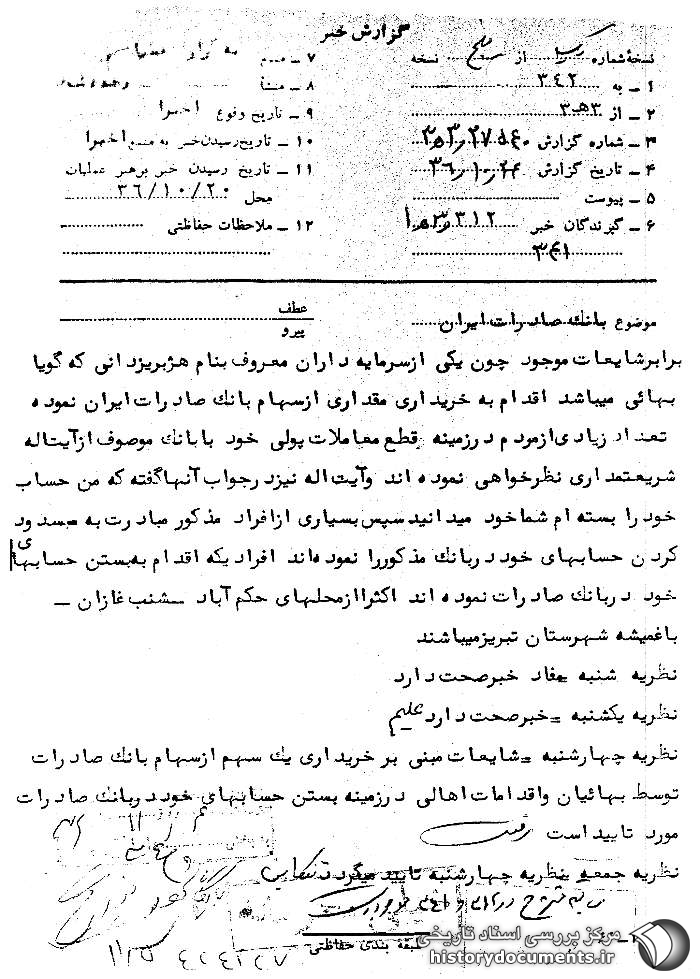 گزارش خبر
نسخهٔ شماره از نسخه
۱ ـ به ۳۴۲
۲ ـ از ۳هـ۳
۳ ـ شماره گزارش
۴ ـ تاریخ گزارش
۵ ـ پیوست
۶ ـ گیرندگان خبر ۳۱۲
۳۴۱
۷ ـ
۸ ـ منشأ
۹ ـ تاریخ وقوع اخیرا
۱۰ ـ تاریخ رسیدن خبر به منبع اخیرا
۱۱ ـ تاریخ رسیدن خبر برهبر عملیات
محل ۳۶/۱۰/۲۰
۱۲ ـ ملاحظات حفاظتی
موضوع بانك صادرات ایران
عطف
پیرو
برابر شایعات موجود چون یکی ازسرمایه داران معروف بنام هژبریزدانی که گویا
بهائی میباشد اقدام به خریداری مقداری ازسهام بانك صادرات ایران نموده
تعداد زیادی ازمردم درزمینه قطع معاملات پولی خود با بانك موصوف ازآیت اله
شریعتمداری نظرخواهی نموده اند وآیت اله نیزدرجواب آنهاگفته که من حساب
خود را بسته ام شماخود میدانید سپس بسیاری ازافراد مذکور مبادرت به مسدود
کردن حسابهای خود دربانك مذکوررا نموده اند افراد یکه اقدام به بستن حسابهای
خود دربانك صادرات نموده اند اکثرا ازمحلهای حکم آباد ـ شنب غازان ـ
باغمیشه شهرستان تبریزمیباشند
نظریه شنبه ـ مفاد خبرصحت دارد
نظریه یکشنبه ـ خبرصحت دارد علیم
نظریه چهارشنبه ـ شایعات مبنی بر خریداری یك سهم ازسهام بانك صادرات
توسط بهائیان واقدامات اهالی درزمینه بستن حسابهای خود دربانك صادرات
مورد تایید است
نظریه جمعه ـ نظریه چهارشنبه تایید میگردد
طبقه بندی حفاظتی
مرکز بررسی اسناد تاریخی
historydocuments.ir